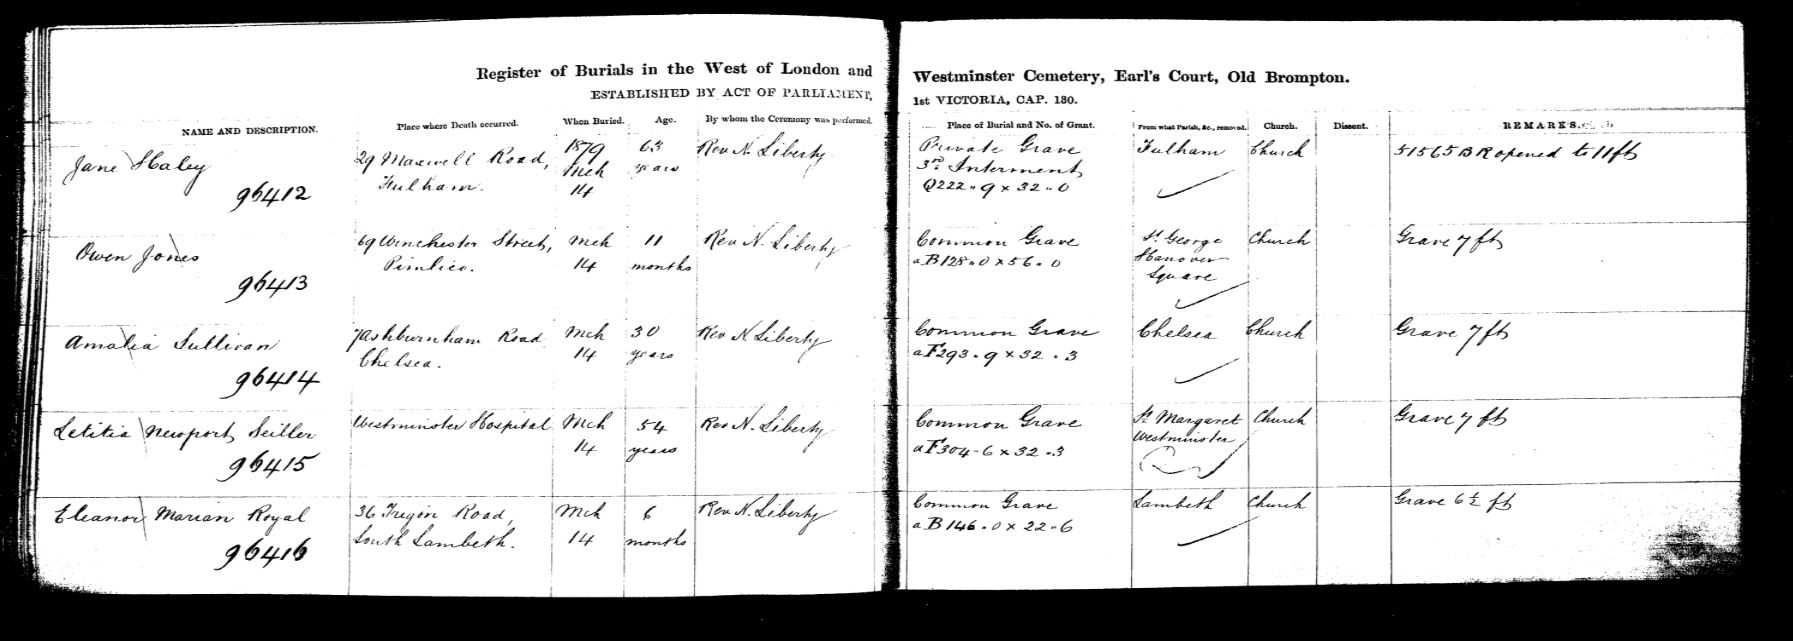 Register of Burials in the West of London and Westminster Cemetery, Earl's Court, Old Brompton.
ESTABLISHED BY ACT OF PARLIAMENT, 1st VICTORIA, CAP. 130.
NAME AND DESCRIPTION. Place where Death occurred. When Buried. Age. By whom the Ceremony was performed. Place of Burial and No. of Grant. From what Parish, &c., removed. Church. Dissent. REMARKS.
Jane Haley 29 Maxwell Road, 1879 63 Rev N. Liberty Private Grave Fulham Church 51565 BR opened to 11 ft
Fulham. Mch years 3rd Interment
96412 14 Q222.9 x 32.0
Owen Jones 69 Winchester Street, Mch 11 Rev N. Liberty Common Grave St George Church Grave 7 ft
Pimlico. 14 months aB128.0 x 56.0 Hanover
96413 Square
Amalia Sullivan 7 Ashburnham Road Mch 30 Rev N Liberty Common Grave Chelsea Church Grave 7 ft
Chelsea. 14 years aF293.9 x 32.3
96414
Letitia Newport Seiller Westminster Hospital Mch 54 Rev N. Liberty Common Grave St Margaret Church Grave 7 ft
96415 14 years aF304-6 x 32.3 Westminster
Eleanor Marian Royal 36 Tregon Road, Mch 6 Rev N. Liberty Common Grave Lambeth Church Grave 6½ ft
South Lambeth. 14 months aB146.0 x 22.6
96416